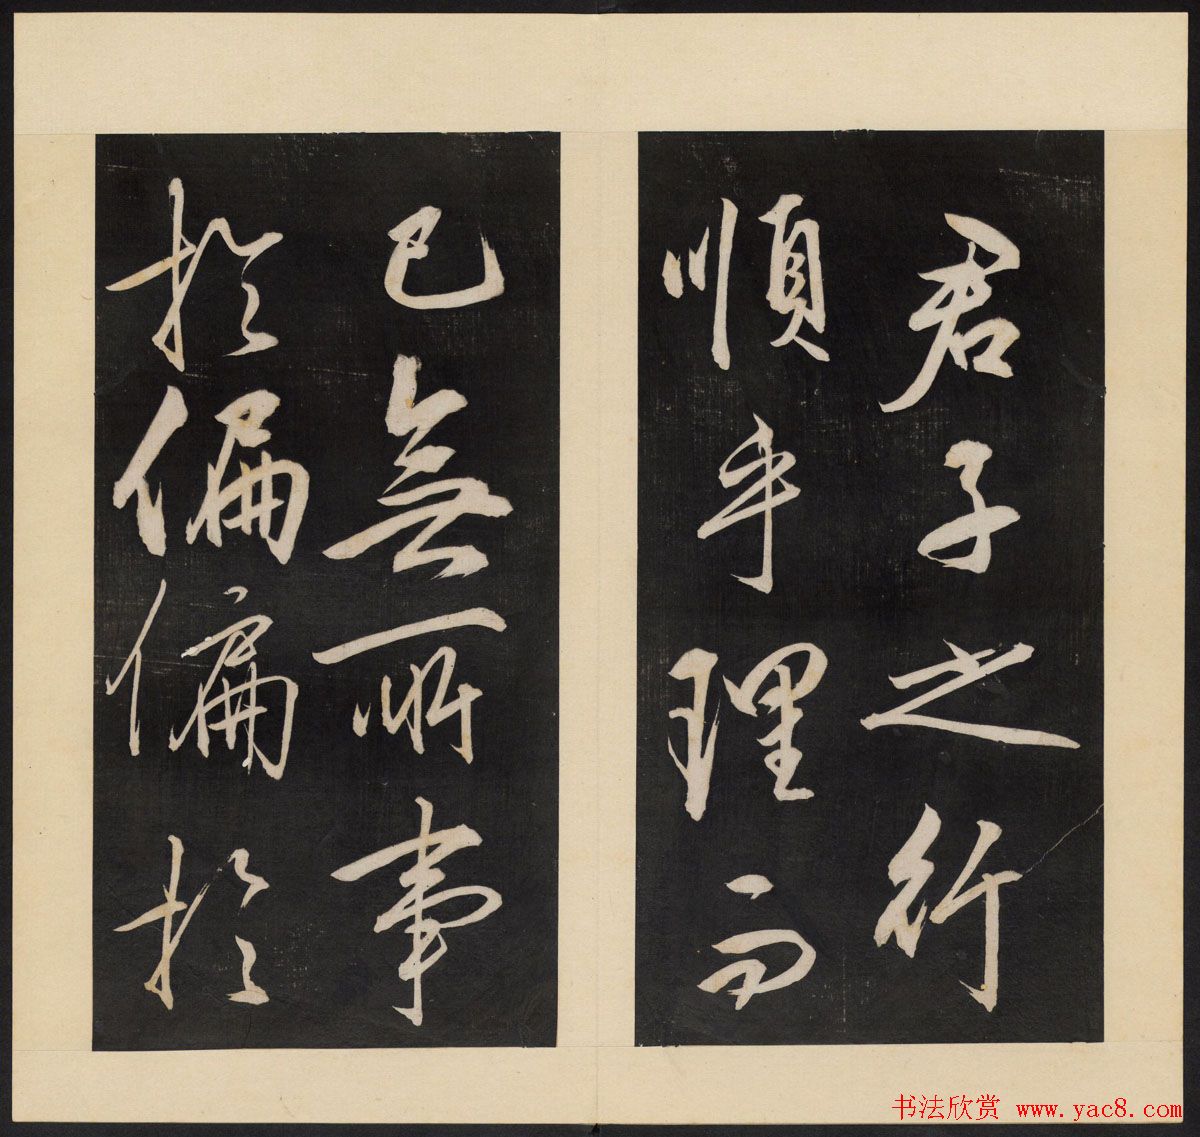 君子之行
順乎理而
已無所事
於偏偏於
书法欣赏 www.yac8.com